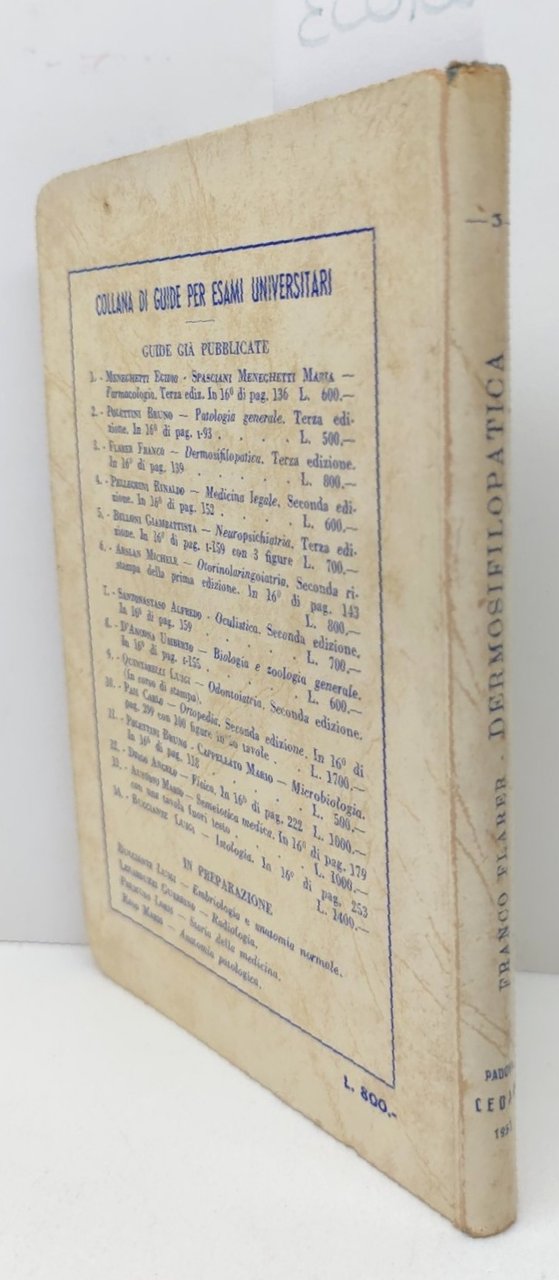 COLLANA DI GUIDE PER ESAMI UNIVERSITARI
GUIDE GIÀ PUBBLICATE
1. - MENEGHETTI EGIDIO - SPASCIANI MENEGHETTI MARIA —
Farmacologia. Terza ediz. In 16º di pag. 136 L. 600.—
2. - POLETTINI BRUNO — Patologia generale. Terza edi-
zione. In 16º di pag. 1-93 . . . . . L. 500.—
3. - FLARER FRANCO — Dermosifilopatica. Terza edizione.
In 16º di pag. 139 . . . . . . L. 800.—
4. - PELLEGRINI RINALDO — Medicina legale. Seconda edi-
zione. In 16º di pag. 152 . . . . . L. 600.—
5. - BELLONI GIAMBATTISTA — Neuropsichiatria. Terza edi-
zione. In 16º di pag. 1-159 con 3 figure L. 700.—
6. - ARSLAN MICHELE — Otorinolaringoiatria. Seconda ri-
stampa della prima edizione. In 16º di pag. 143
L. 800.—
7. - SANTONASTASO ALFREDO - Oculistica. Seconda edizione.
In 16º di pag. 159 . . . . . . L. 700.—
8. - D'ANCONA UMBERTO — Biologia e zoologia generale.
In 16º di pag. 1-155 . . . . . L. 600.—
9. - QUINTARELLI LUIGI — Odontoiatria. Seconda edizione.
(in corso di stampa).
10. - PAIS CARLO — Ortopedia. Seconda edizione. In 16º di
pag. 299 con 100 figure in 50 tavole . . L. 1700.—
11. - POLETTINI BRUNO - CAPPELLATO MARIO — Microbiologia.
In 16º di pag. 118 . . . . . . L. 500.—
12. - DRIGO ANGELO — Fisica. In 16º di pag. 222 L. 1000.—
13. - AUSTONI MARIO — Semeiotica medica. In 16º di pag. 179
con una tavola fuori testo . . . . . L. 1000.—
14. - BUCCIANTE LUIGI — Istologia. In 16º di pag. 253
L. 1400.—
IN PREPARAZIONE
BUCCIANTE LUIGI — Embriologia e anatomia normale.
— Radiologia.
PREMUDA LORIS — Storia della medicina.
RASO MARIO — Anatomia patologica.
L. 800.-
3
FRANCO FLARER - DERMOSIFILOPATICA